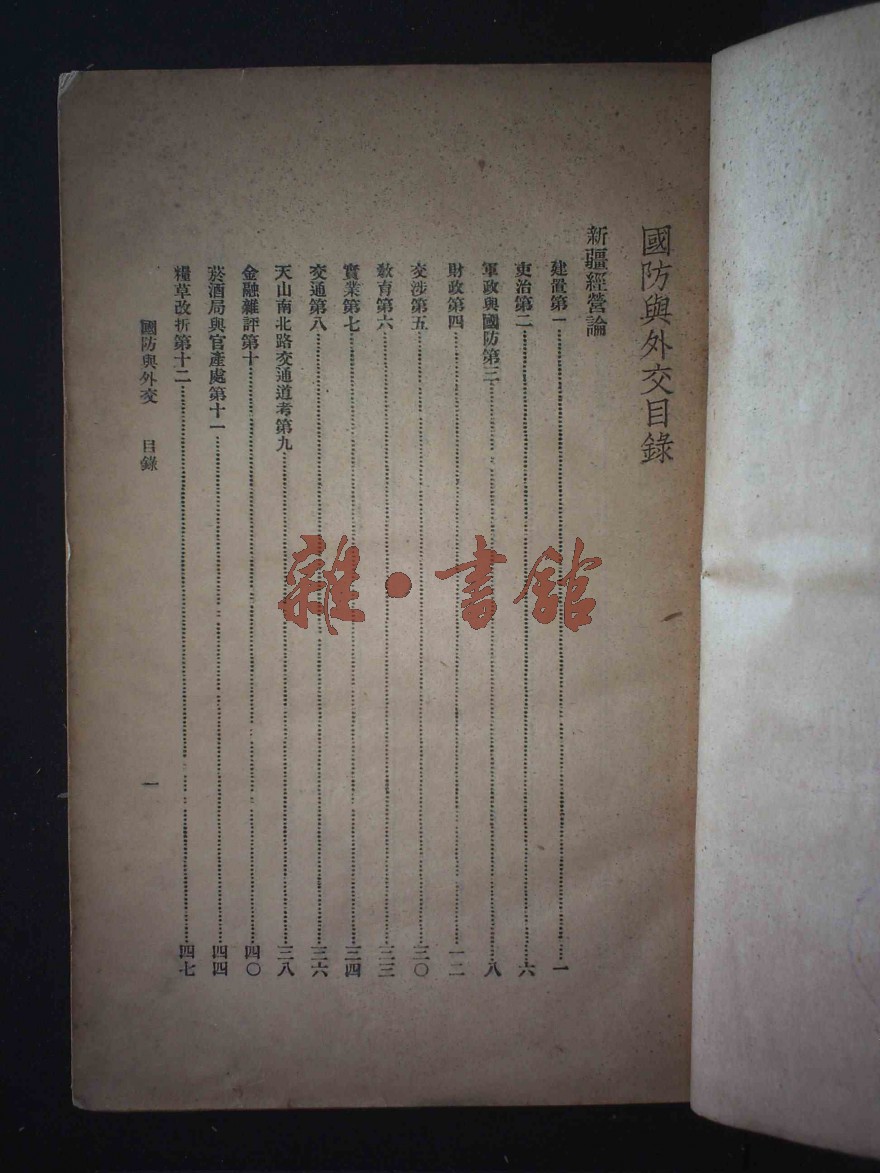 國防與外交目錄
新疆經營論
建置第一……一
吏治第二……六
軍政與國防第三……八
財政第四……一二
交涉第五……三〇
教育第六……三三
實業第七……三四
交通第八……三六
天山南北路交通道考第九……三八
金融雜評第十……四〇
菸酒局與官產處第十一……四四
糧草改折第十二……四七
國防與外交 目錄 一
雜·書館